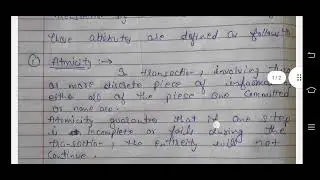 these atributes are defined as follows
① Atmicity :→
In transaction, involving two
or more discrete piece of
either all of the piece are committed
or none are.
Atmicity guarantee that if one step
is incomplete or fails during the
transaction, the entirity will not
continue.
1/2